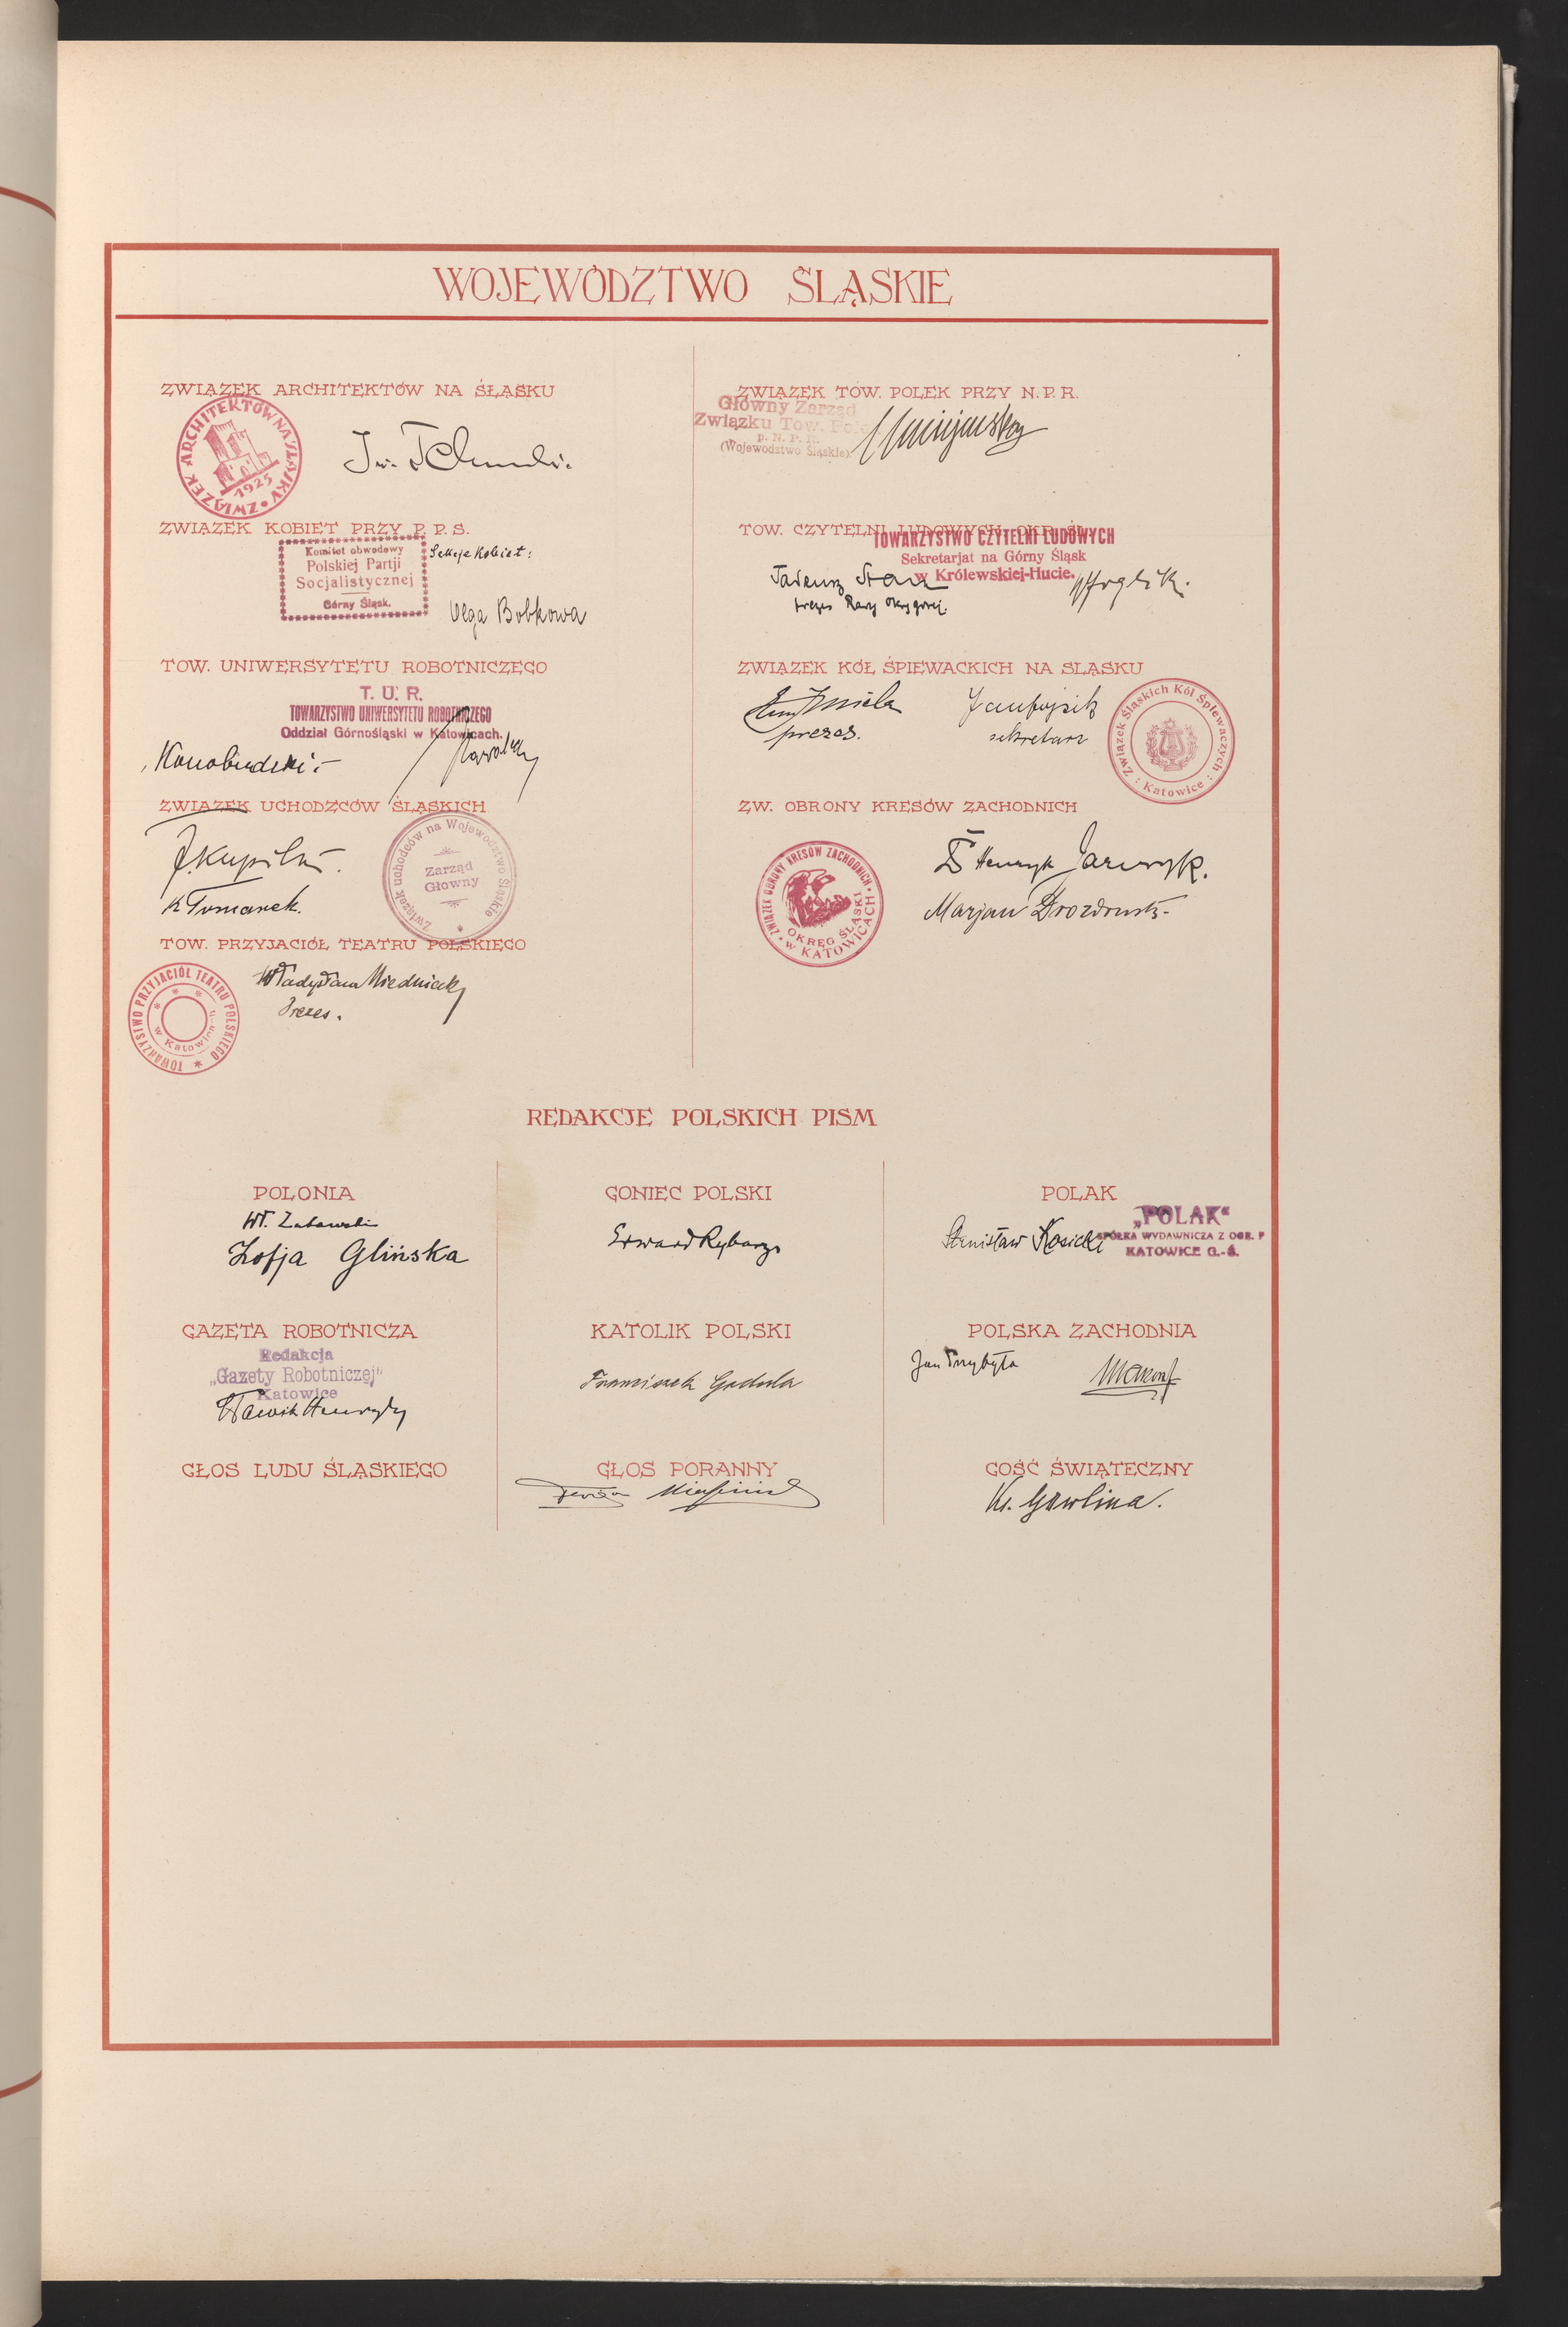 WOJEWÓDZTWO ŚLĄSKIE
ZWIĄZEK ARCHITEKTÓW NA ŚLĄSKU
ZWIĄZEK ARCHITEKTÓW NA ŚLĄSKU
1925
ZWIĄZEK KOBIET PRZY P. P. S.
Komitet obwodowy
Polskiej Partji
Socjalistycznej
Górny Śląsk.
Sekcja Kobiet:
Olga Bobkowa
TOW. UNIWERSYTETU ROBOTNICZEGO
T. U. R.
TOWARZYSTWO UNIWERSYTETU ROBOTNICZEGO
Oddział Górnośląski w Katowicach.
ZWIĄZEK UCHODŹCÓW ŚLĄSKICH
Związek uchodźców na Województwo Śląskie
Zarząd
Główny
K Tomanek.
TOW. PRZYJACIÓŁ TEATRU POLSKIEGO
TOWARZYSTWO PRZYJACIÓŁ TEATRU POLSKIEGO
w Katowicach
Prezes.
ZWIĄZEK TOW. POLEK PRZY N. P. R.
Główny Zarząd
Związku Tow. Pole
p. N. P. R.
(Województwo Śląskie)
TOW. CZYTELNI LUDOWYCH OKR. ŚL.
TOWARZYSTWO CZYTELNI LUDOWYCH
Sekretarjat na Górny Śląsk
w Królewskiej-Hucie.
Tadeusz Starz
prezes Rady okręgowej.
ZWIĄZEK KÓŁ ŚPIEWACKICH NA SLĄSKU
prezes.
sekretarz
Związek Śląskich Kół Śpiewaczych
: Katowice :
ZW. OBRONY KRESÓW ZACHODNICH
ZWIĄZEK OBRONY KRESÓW ZACHODNICH
OKRĘG ŚLĄSKI
w KATOWICACH
Henryk
Marjan
REDAKCJE POLSKICH PISM
POLONIA
Wł. Zabawski
Zofja Glińska
GONIEC POLSKI
Edward Rybarz
POLAK
Stanisław Kosicki
„POLAK“
SPÓŁKA WYDAWNICZA Z OGR. P
KATOWICE G.-Ś.
GAZETA ROBOTNICZA
Redakcja
„Gazety Robotniczej“
Katowice
Sławik Henryk
KATOLIK POLSKI
Franciszek Godula
POLSKA ZACHODNIA
Jan Przybyła
GŁOS LUDU ŚLĄSKIEGO
GŁOS PORANNY
GOŚĆ ŚWIĄTECZNY
Ks. Gawlina.